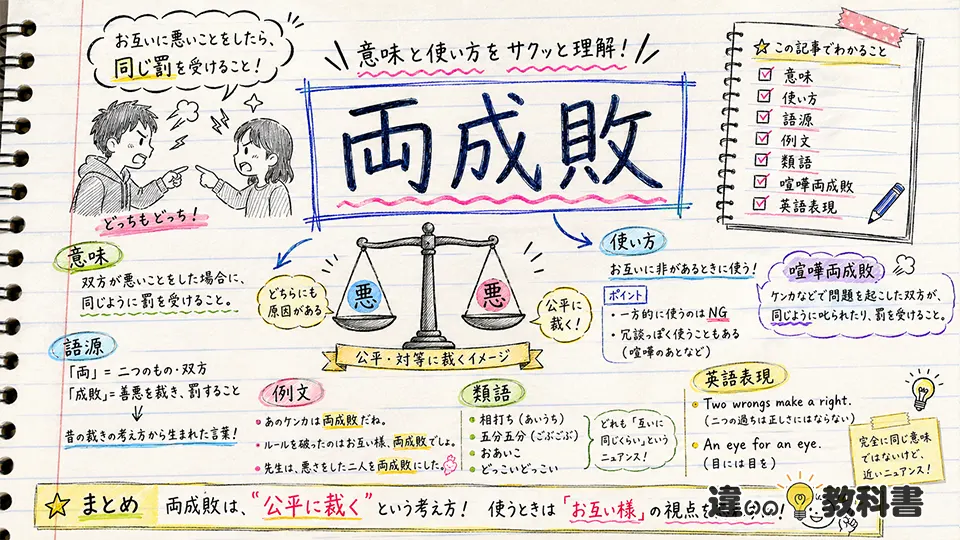 お互いに悪いことをしたら、
同じ罰を受けること！
どっちもどっち！
意味と使い方をサクッと理解！
両成敗
☆この記事でわかること
意味
使い方
語源
例文
類語
喧嘩両成敗
英語表現
意味
双方が悪いことをした場合に、
同じように罰を受けること。
語源
「両」＝ 二つのもの・双方
「成敗」＝ 善悪を裁き、罰すること
昔の裁きの考え方から生まれた言葉！
どちらにも
原因がある
悪
悪
公平に
裁く！
公平・対等に裁くイメージ
使い方
お互いに非があるときに使う！
ポイント
・一方的に使うのはNG
・冗談っぽく使うこともある
（喧嘩のあとなど）
喧嘩両成敗
ケンカなどで問題を起こした双方が、
同じように叱られたり、罰を受けること。
例文
・あのケンカは両成敗だね。
・ルールを破ったのはお互い様、両成敗でしょ。
・先生は、悪さをした二人を両成敗にした。
類語
・相打ち（あいうち）
・五分五分（ごぶごぶ）
・おあいこ
・どっこいどっこい
どれも「互いに
同じくらい」という
ニュアンス！
英語表現
・Two wrongs make a right.
（二つの過ちは正しさにはならない）
・An eye for an eye.
（目には目を）
完全に同じ意味
ではないけど、
近いニュアンス！
☆まとめ 両成敗は、“公平に裁く”という考え方！ 使うときは「お互い様」の視点を
違いの教科書